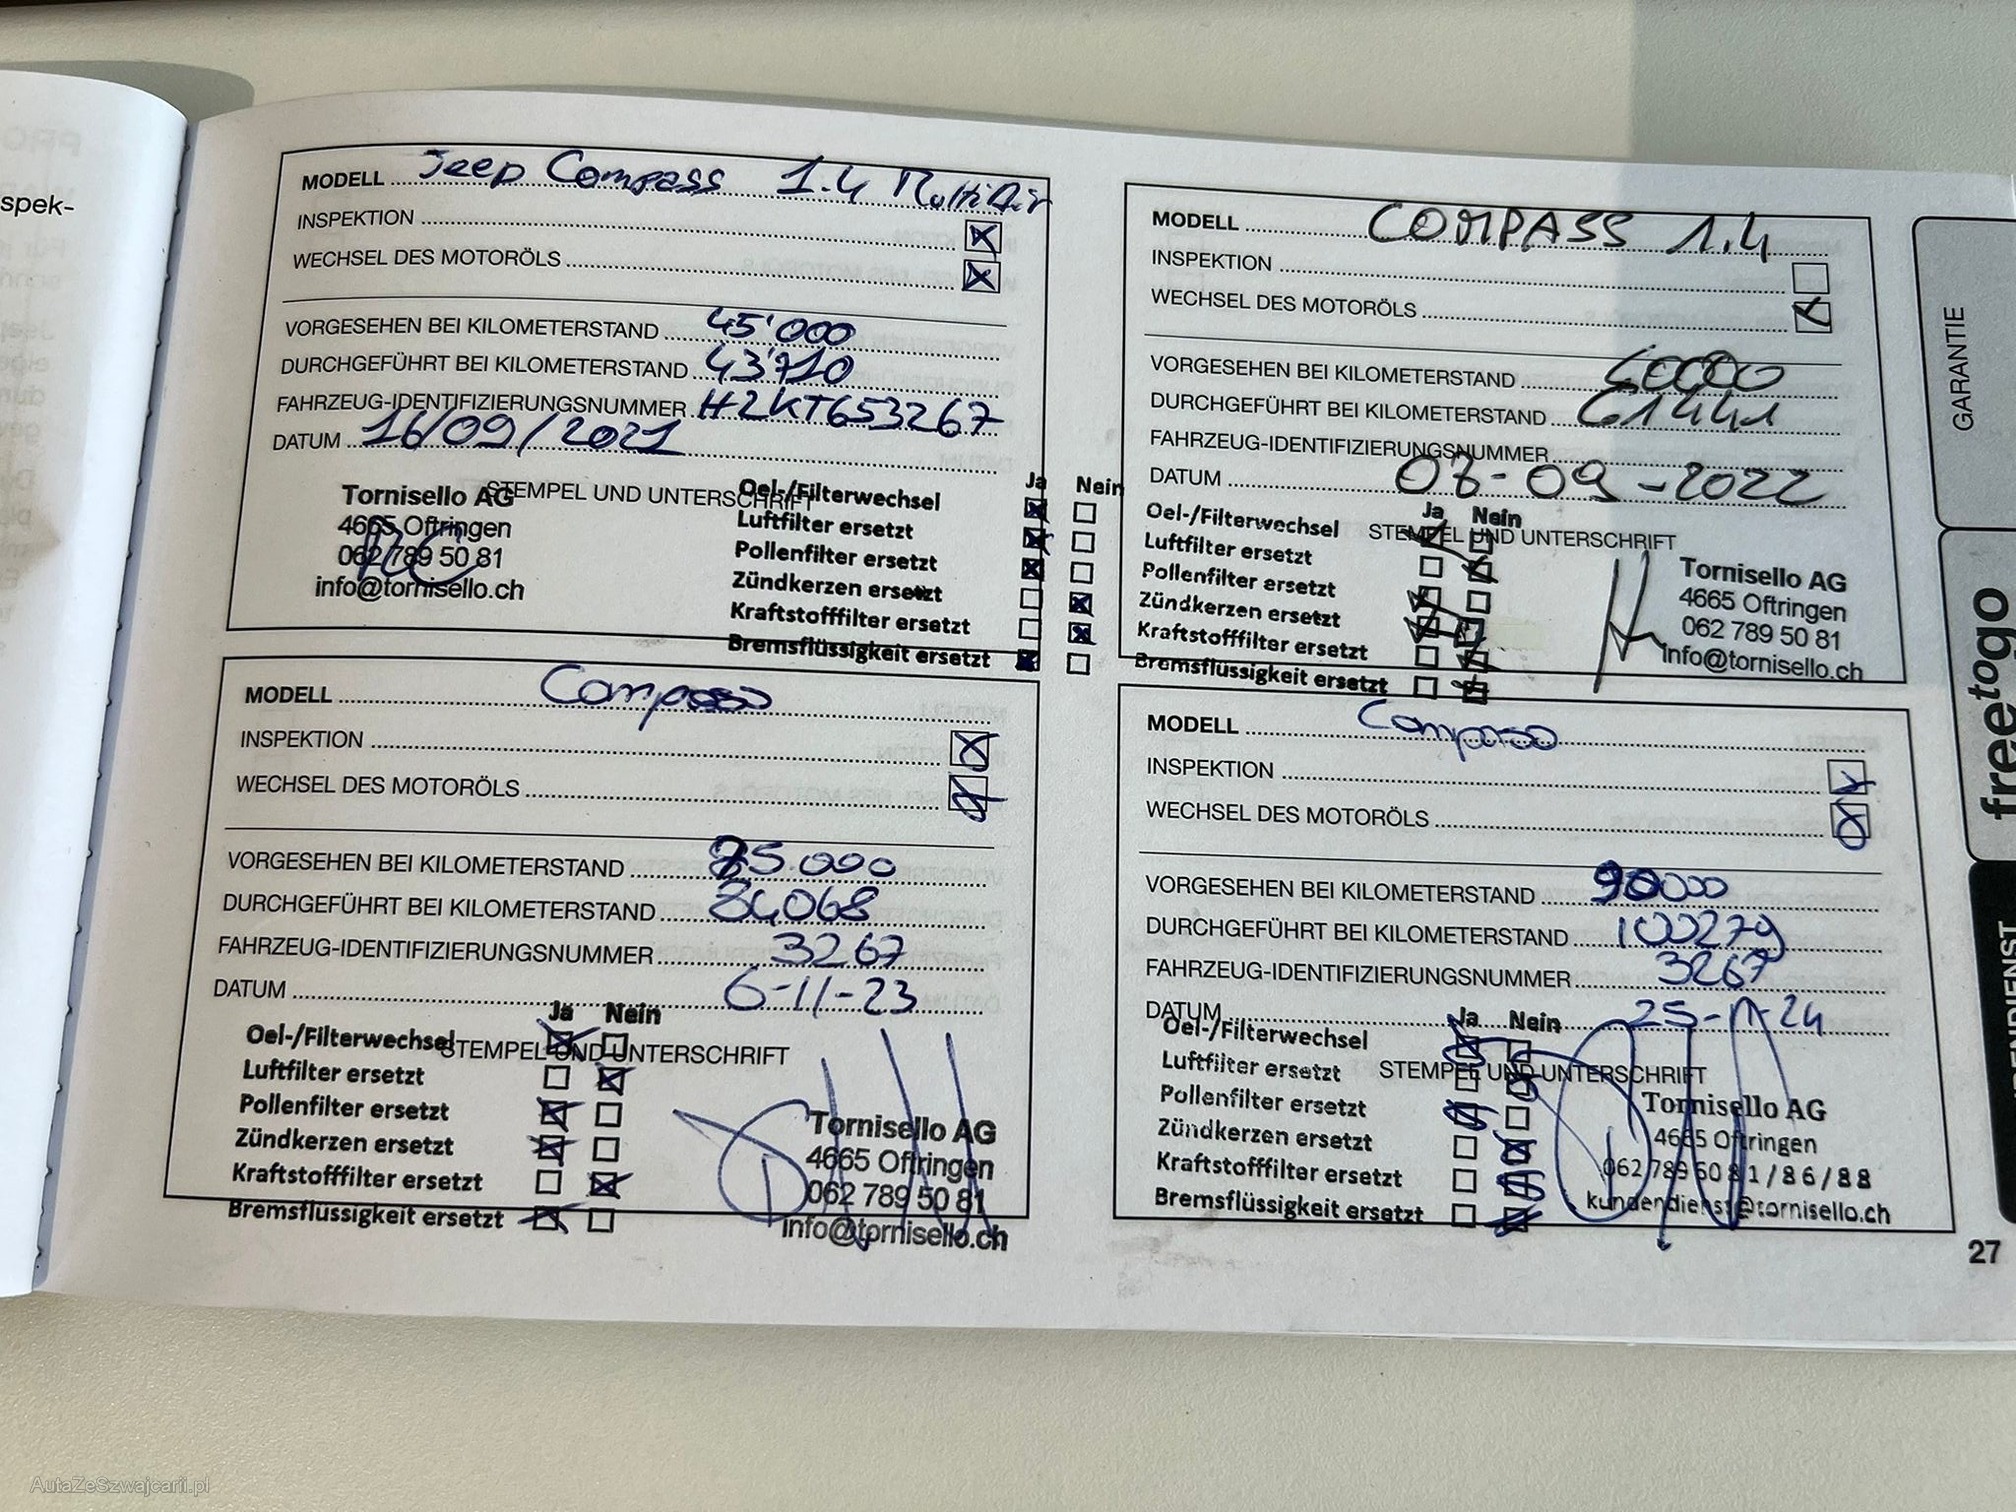 spek-
MODELL Jeep Compass 1.4 MultiAir
INSPEKTION
WECHSEL DES MOTORÖLS
VORGESEHEN BEI KILOMETERSTAND 45'000
DURCHGEFÜHRT BEI KILOMETERSTAND 43'710
FAHRZEUG-IDENTIFIZIERUNGSNUMMER H2KT653267
DATUM 16/09/2021
STEMPEL UND UNTERSCHRIFT
Tornisello AG
4665 Oftringen
062 789 50 81
info@tornisello.ch
Ja Nein
Oel-/Filterwechsel
Luftfilter ersetzt
Pollenfilter ersetzt
Zündkerzen ersetzt
Kraftstofffilter ersetzt
Bremsflüssigkeit ersetzt
MODELL COMPASS 1.4
INSPEKTION
WECHSEL DES MOTORÖLS
VORGESEHEN BEI KILOMETERSTAND 60000
DURCHGEFÜHRT BEI KILOMETERSTAND 61441
FAHRZEUG-IDENTIFIZIERUNGSNUMMER
DATUM 07-09-2022
Ja Nein
STEMPEL UND UNTERSCHRIFT
Oel-/Filterwechsel
Luftfilter ersetzt
Pollenfilter ersetzt
Zündkerzen ersetzt
Kraftstofffilter ersetzt
Bremsflüssigkeit ersetzt
Tornisello AG
4665 Oftringen
062 789 50 81
info@tornisello.ch
MODELL Compass
INSPEKTION
WECHSEL DES MOTORÖLS
VORGESEHEN BEI KILOMETERSTAND
DURCHGEFÜHRT BEI KILOMETERSTAND 84068
FAHRZEUG-IDENTIFIZIERUNGSNUMMER 3267
DATUM 6-11-23
Ja Nein
STEMPEL UND UNTERSCHRIFT
Oel-/Filterwechsel
Luftfilter ersetzt
Pollenfilter ersetzt
Zündkerzen ersetzt
Kraftstofffilter ersetzt
Bremsflüssigkeit ersetzt
Tornisello AG
4665 Oftringen
062 789 50 81
info@tornisello.ch
MODELL Compass
INSPEKTION
WECHSEL DES MOTORÖLS
VORGESEHEN BEI KILOMETERSTAND 90000
DURCHGEFÜHRT BEI KILOMETERSTAND 100279
FAHRZEUG-IDENTIFIZIERUNGSNUMMER 3267
DATUM 25-11-24
Ja Nein
STEMPEL UND UNTERSCHRIFT
Oel-/Filterwechsel
Luftfilter ersetzt
Pollenfilter ersetzt
Zündkerzen ersetzt
Kraftstofffilter ersetzt
Bremsflüssigkeit ersetzt
Tornisello AG
4665 Oftringen
062 789 50 81/86/88
kundendienst@tornisello.ch
GARANTIE
freetogo
27
AutaZeSzwajcarii.pl